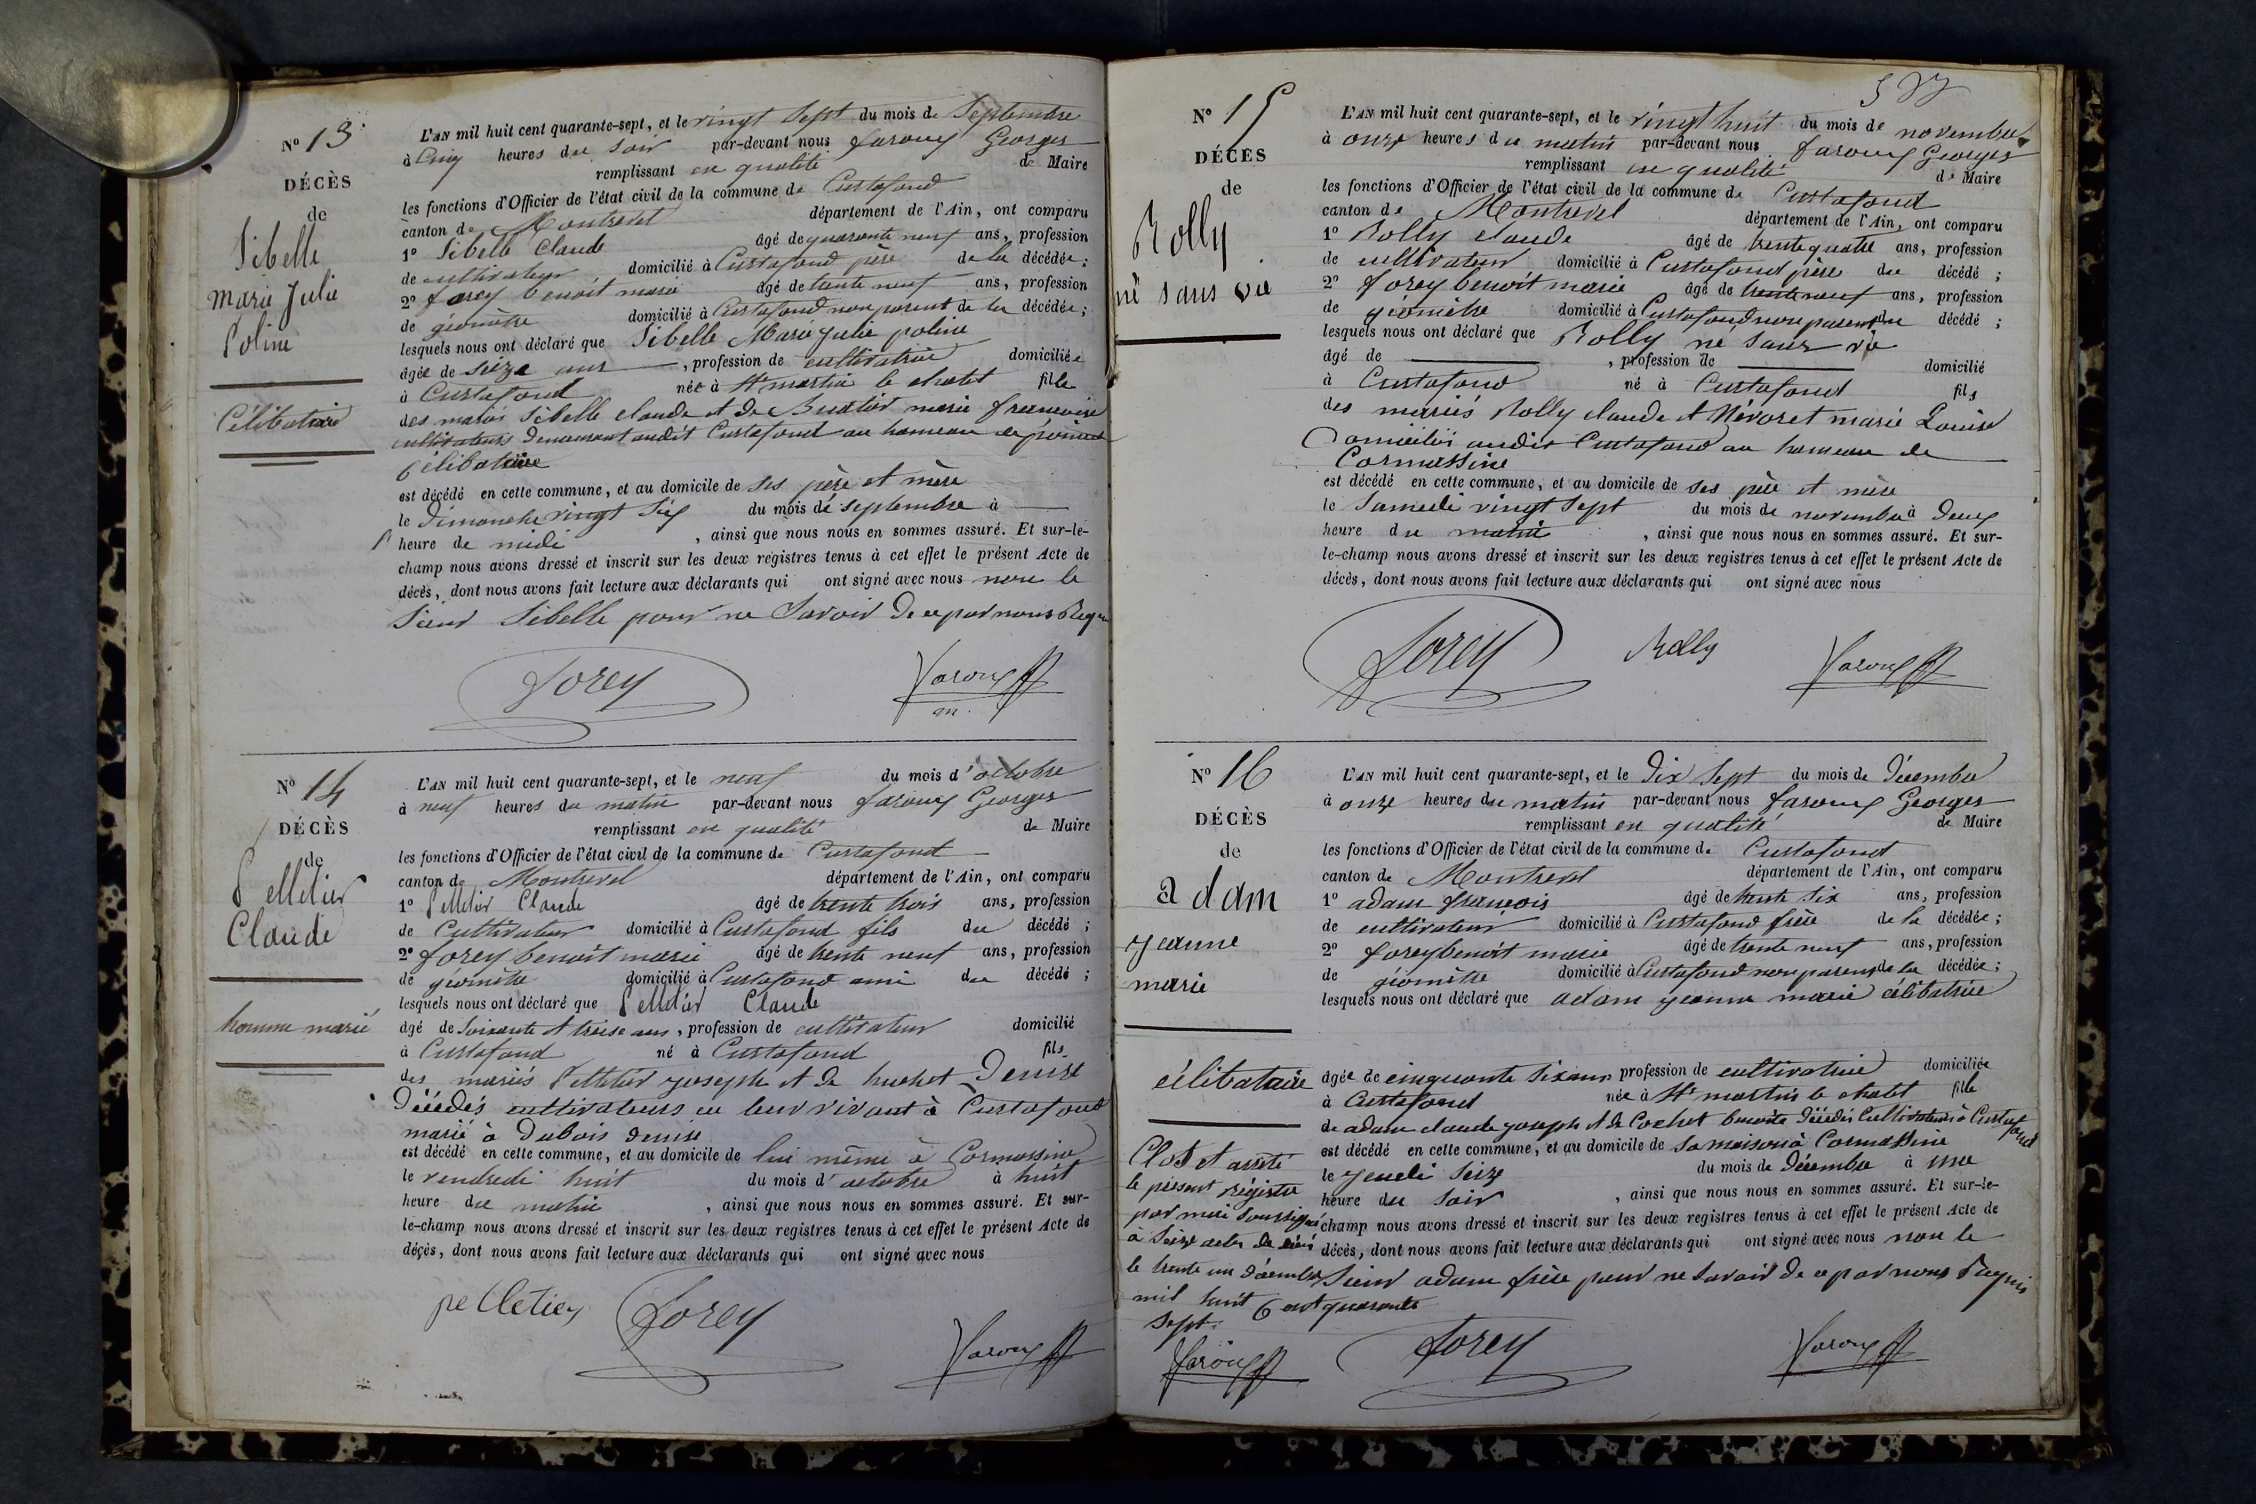 N° 13
DÉCÈS
de
Sibelle
marie Julie
Poline
Célibataire
L'AN mil huit cent quarante-sept, et le vingt Sept du mois de Septembre
à Cinq heures du Soir par-devant nous faroux Georges
remplissant en qualité de Maire
les fonctions d'Officier de l'état civil de la commune de Curtafond
canton de Montrevel département de l'Ain, ont comparu
1° Sibelle Claude âgé de quarante neuf ans, profession
de cultivateur domicilié à Curtafond père de la décédée;
2° forey benoit marie âgé de trente neuf ans, profession
de géomètre domicilié à Curtafond non parent de la décédée;
lesquels nous ont déclaré que Sibelle Marie Julie poline
âgée de seize ans, profession de cultivatrice domiciliée
à Curtafond née à St martin le chatel fille
des mariés Sibelle claude et de marie francoise
cultivateurs demeurant audit Curtafond au hameau de
Célibataire
est décédé en cette commune, et au domicile de ses père et mère
le Dimanche vingt Six du mois de septembre à
heure de midi, ainsi que nous nous en sommes assuré. Et sur-le-
champ nous avons dressé et inscrit sur les deux registres tenus à cet effet le présent Acte de
décès, dont nous avons fait lecture aux déclarants qui ont signé avec nous non le
Sieur Sibelle pour ne Savoir de ce par nous Requis
Forey Faroux
m.
N° 14
DÉCÈS
de
Pelletier
Claude
homme marié
L'AN mil huit cent quarante-sept, et le neuf du mois d'octobre
à neuf heures du matin par-devant nous faroux Georges
remplissant en qualité de Maire
les fonctions d'Officier de l'état civil de la commune de Curtafond
canton de Montrevel département de l'Ain, ont comparu
1° Pelletier Claude âgé de trente trois ans, profession
de Cultivateur domicilié à Curtafond fils du décédé;
2° forey benoit marie âgé de trente neuf ans, profession
de géomètre domicilié à Curtafond ami du décédé;
lesquels nous ont déclaré que Pelletier Claude
âgé de Soixante et treise ans, profession de cultivateur domicilié
à Curtafond né à Curtafond fils
des mariés Pelletier joseph et de huchet Denise
Décédés cultivateurs en leur vivant à Curtafond
marié à Dubois denise
est décédé en cette commune, et au domicile de lui même à Cormassine
le vendredi huit du mois d'octobre à huit
heure du matin, ainsi que nous nous en sommes assuré. Et sur-
le-champ nous avons dressé et inscrit sur les deux registres tenus à cet effet le présent Acte de
décès, dont nous avons fait lecture aux déclarants qui ont signé avec nous
pelletier Forey Faroux
N° 15
DÉCÈS
de
Rolly
né sans vie
L'AN mil huit cent quarante-sept, et le vingt huit du mois de novembre
à onze heures du matin par-devant nous faroux Georges
remplissant en qualité de Maire
les fonctions d'Officier de l'état civil de la commune de Curtafond
canton de Montrevel département de l'Ain, ont comparu
1° Rolly claude âgé de trente quatre ans, profession
de cultivateur domicilié à Curtafond père du décédé;
2° forey benoit marie âgé de trente neuf ans, profession
de géomètre domicilié à Curtafond non parent du décédé;
lesquels nous ont déclaré que Rolly né sans vie
âgé de, profession de domicilié
à Curtafond né à Curtafond fils
des mariés Rolly claude et Névoret marie Louise
Domiciliés audit Curtafond au hameau de
Cormassine
est décédé en cette commune, et au domicile de ses père et mère
le Samedi vingt sept du mois de novembre à deux
heure du matin, ainsi que nous nous en sommes assuré. Et sur-
le-champ nous avons dressé et inscrit sur les deux registres tenus à cet effet le présent Acte de
décès, dont nous avons fait lecture aux déclarants qui ont signé avec nous
Forey Rolly Faroux
N° 16
DÉCÈS
de
adam
jeanne
marie
célibataire
L'AN mil huit cent quarante-sept, et le Dix Sept du mois de Décembre
à onze heures du matin par-devant nous faroux Georges
remplissant en qualité de Maire
les fonctions d'Officier de l'état civil de la commune de Curtafond
canton de Montrevel département de l'Ain, ont comparu
1° adam francois âgé de trente six ans, profession
de cultivateur domicilié à Curtafond frère de la décédée;
2° forey benoit marie âgé de trente neuf ans, profession
de géomètre domicilié à Curtafond non parent de la décédée;
lesquels nous ont déclaré que adam jeanne marie célibatrice
âgée de cinquante six ans profession de cultivatrice domiciliée
à Curtafond née à St martin le chatel fille
de adam claude joseph et de Cochet benoite Décédés Cultivateurs à Curtafond
est décédé en cette commune, et au domicile de Sa maison à Cormassine
le jeudi seize du mois de Décembre à une
heure du soir, ainsi que nous nous en sommes assuré. Et sur-le-
champ nous avons dressé et inscrit sur les deux registres tenus à cet effet le présent Acte de
décès, dont nous avons fait lecture aux déclarants qui ont signé avec nous non le
Sieur adam frère pour ne Savoir de ce par nous Requis
Forey Faroux
Clos et arrêté
le présent régistre
par moi Soussigné
à Seize actes de décès
le trente un décembre
mil huit Cent quarante
Sept.
Faroux